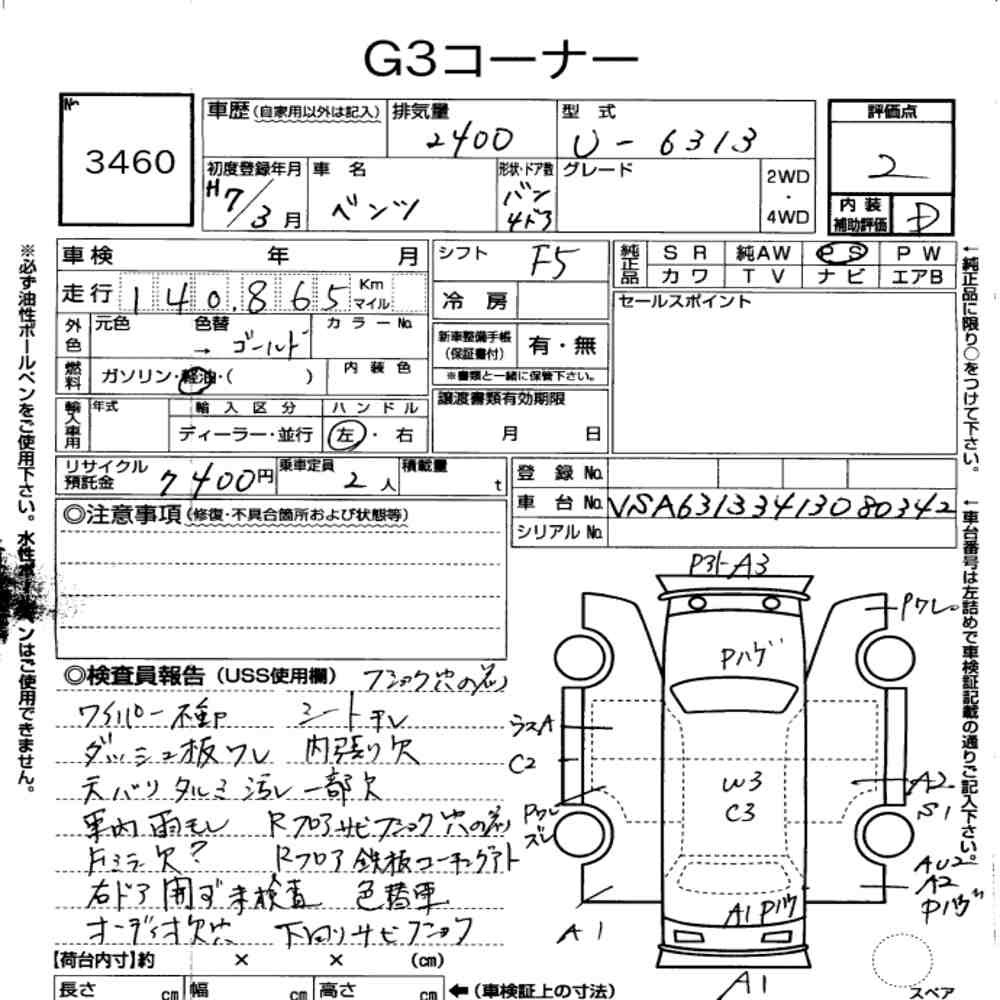 G3コーナー
No.
3460
車歴(自家用以外は記入)
排気量
2400
型 式
U-6313
評価点
2
初度登録年月
H7/3月
車 名
ベンツ
形状・ドア数
バン
4ドア
グレード
2WD
・
4WD
内 装
補助評価
D
車検 年 月
シフト
F5
純正品
SR 純AW PS PW
カワ TV ナビ エアB
走行 140,865 Km マイル
冷 房
セールスポイント
外色
元色 色替
→ ゴールド
カラーNo.
新車整備手帳
(保証書付)
有・無
※書類と一緒に保管下さい。
燃料
ガソリン・軽油・( )
内 装 色
譲渡書類有効期限
月 日
輸入車用
年式
輸 入 区 分
ハ ン ド ル
ディーラー・並行
左・右
リサイクル
預託金
7400円
乗車定員
2人
積載量
t
登 録 No.
車 台 No. VSA63133413080342
シリアル No.
◎注意事項(修復・不具合箇所および状態等)
◎検査員報告(USS使用欄)
フショック穴の名
ワイパー不動 シート
ダッシュ板ワレ 内張り欠
天バリタルミ汚レ一部欠
車内雨モレ Rフロアサビフショック穴の名
Fミラー欠? Rフロア鉄板コーキングアト
右ドア開ず未検査 色替車
オーディオ欠穴 下回りサビフショック
【荷台内寸】約 × × (cm)
長さ cm
幅 cm
高さ cm
←(車検証上の寸法)
A3
Pワレ
Pハゲ
ラスA
C2
Pワレ
ズレ
W3
C3
A2
S1
AU2
A2
Pハゲ
A1
A1 Pハゲ
A1
スペア
※必ず油性ボールペンをご使用下さい。水性ボールペンはご使用できません。
←純正品に限り○をつけて下さい。
←車台番号は左詰めで車検証記載の通りご記入下さい。